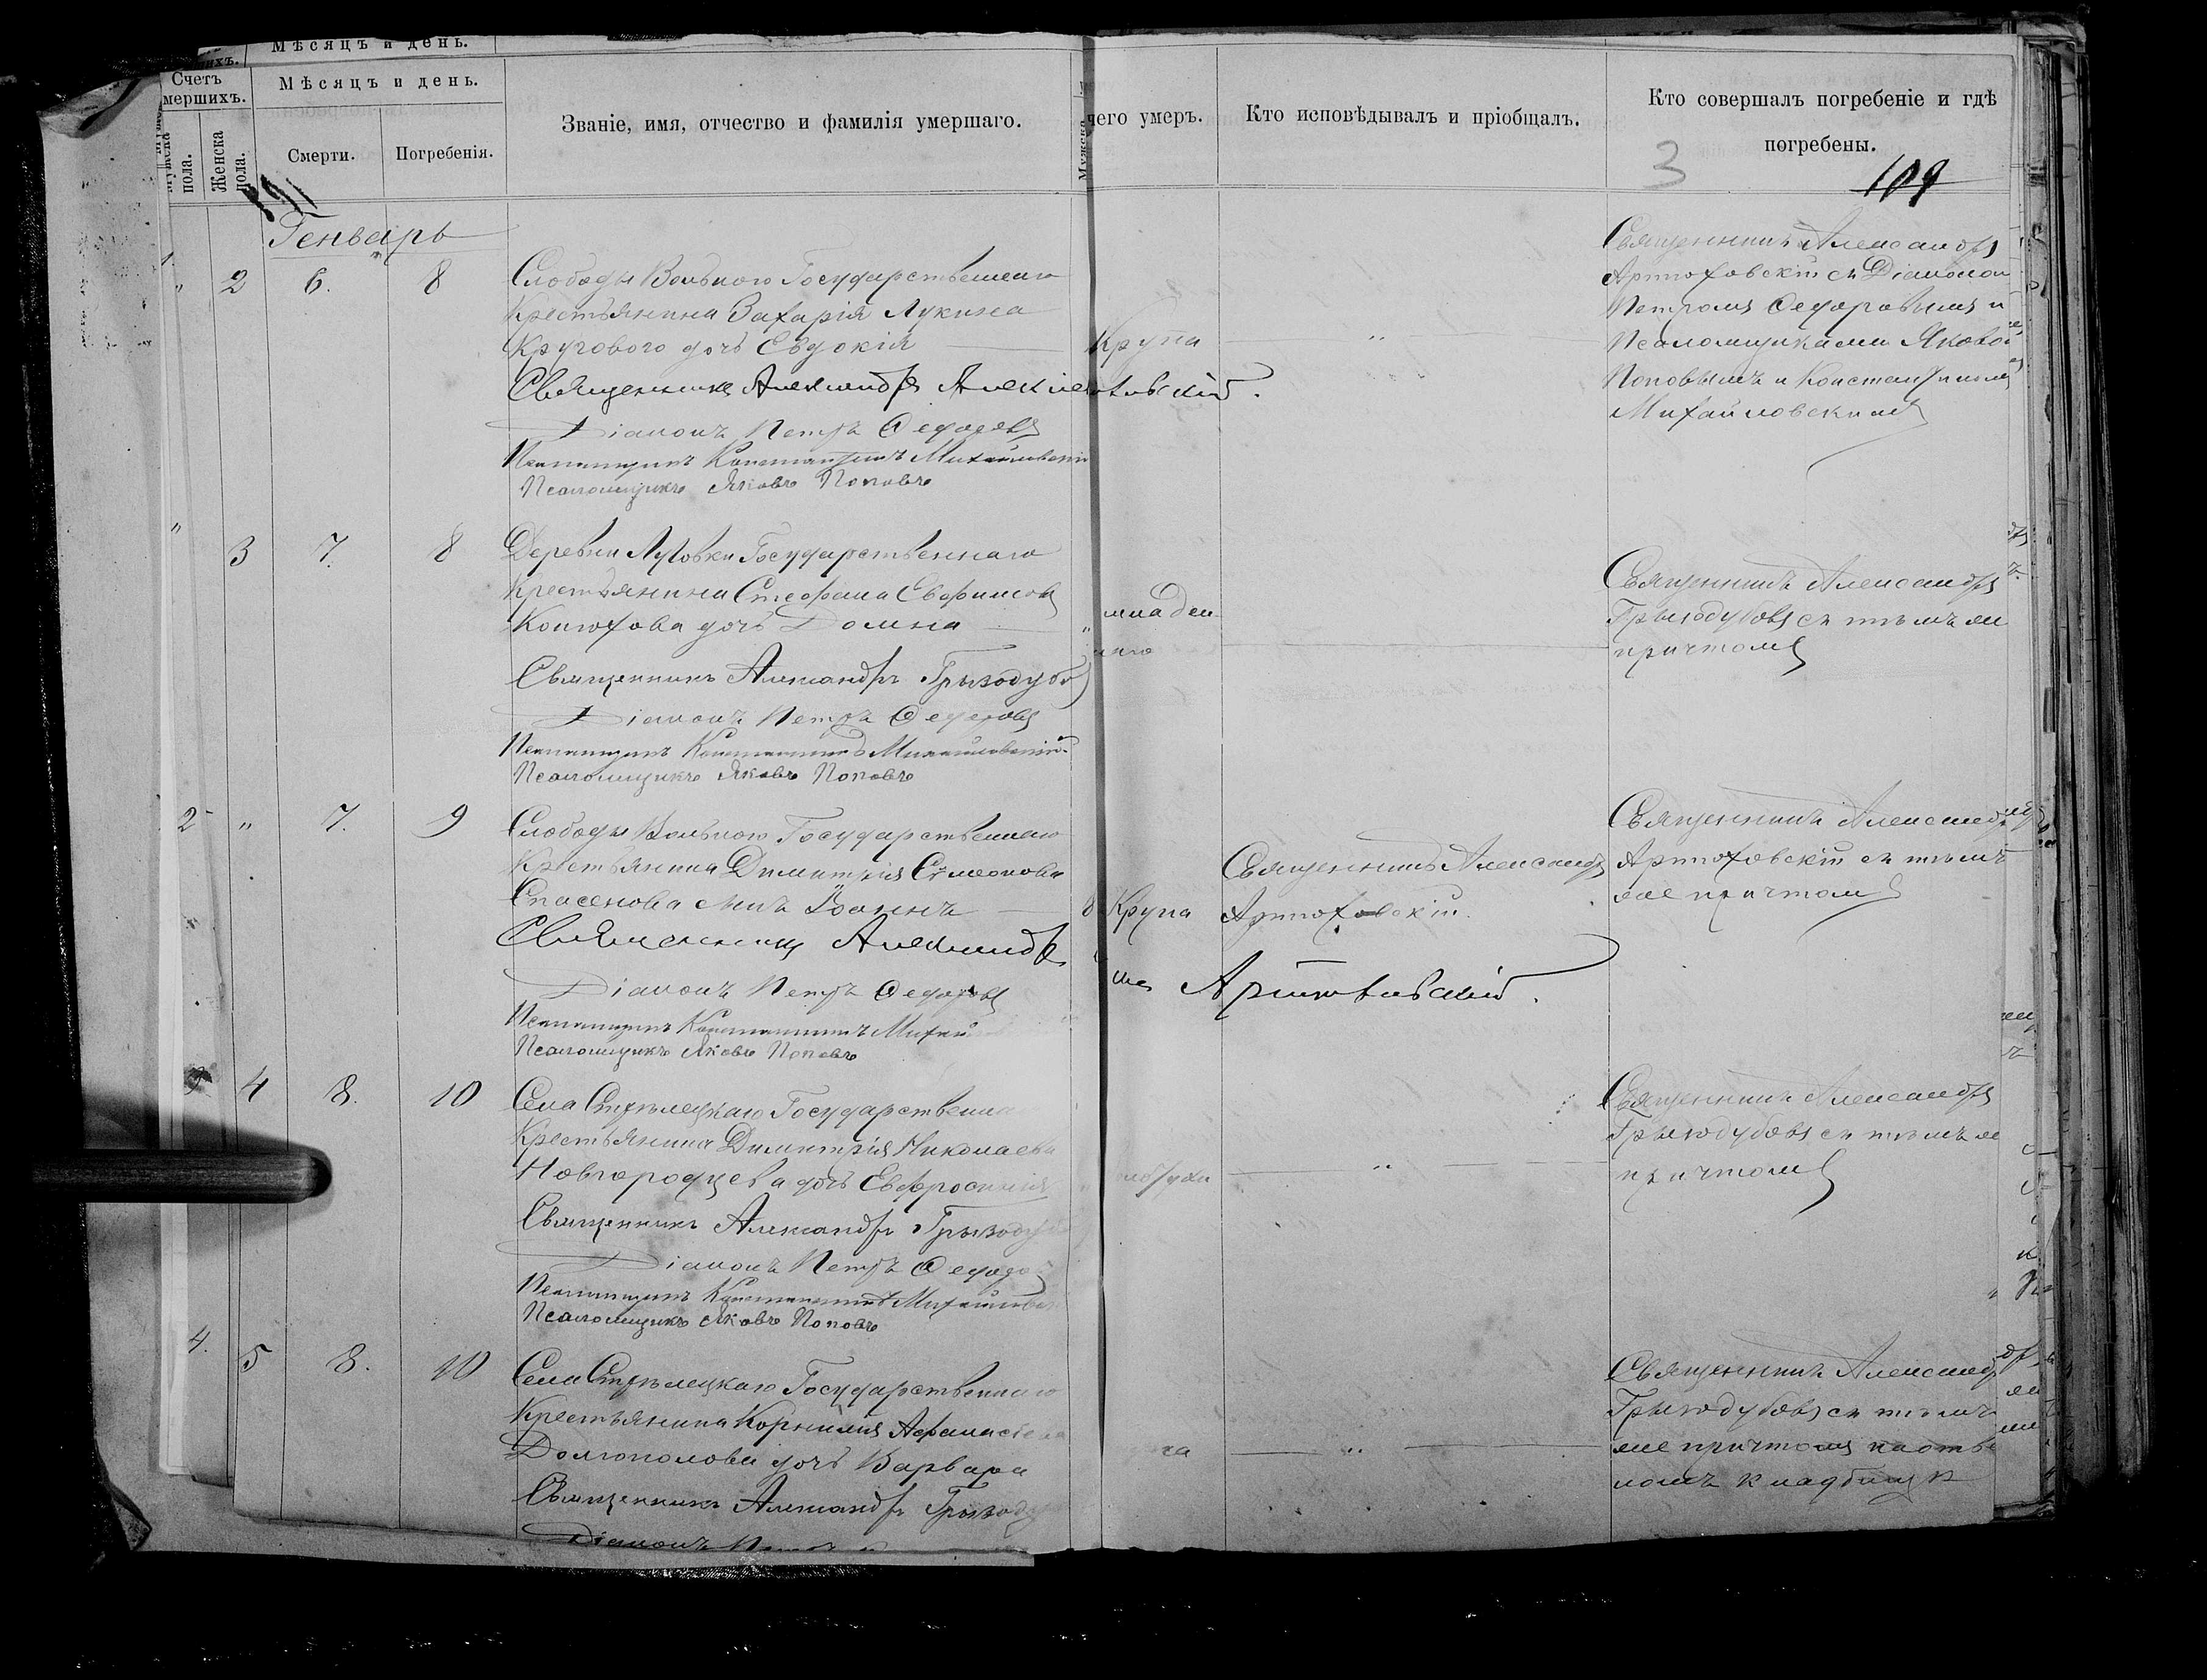 Мѣсяцъ и день.
Счетъ
мершихъ.
Мѣсяцъ и день.
Званіе, имя, отчество и фамилія умершаго.
чего умеръ.
Кто исповѣдывалъ и пріобщалъ.
Кто совершалъ погребеніе и гдѣ
погребены.
пола.
Женска
пола.
Смерти.
Погребенія.
3
109
Генварь
2 6. 8
Слободы Вольного Государственнаго
Крестьянина Захарія Лукина
Кругового дочь Евдокія
Крупа
Священникъ Александръ
Діаконъ Петръ Ѳедоровъ
Псаломщикъ Константинъ Михайловскій
Псаломщикъ Яковъ Поповъ
Священникъ Александръ
Артюховскій съ Діакономъ
Петромъ Ѳедоровымъ и
Псаломщиками Яковомъ
Поповымъ и Константиномъ
Михайловскимъ
" 3 7. 8
Деревни Государственнаго
Крестьянина Стефана Евфимова
Конюхова дочь Домна
младен
Священникъ Александръ
Діаконъ Петръ Ѳедоровъ
Псаломщикъ Константинъ Михайловскій
Псаломщикъ Яковъ Поповъ
Священникъ Александръ
Грызодубовъ съ тѣмъ же
причтомъ
2 " 7. 9
Слободы Вольного Государственнаго
Крестьянина Димитрія Симеонова
Спасенова сынъ Іоаннъ
Крупа
Священникъ Александръ
Артюховскій
Священникъ Александръ
Артюховскій.
Діаконъ Петръ Ѳедоровъ
Псаломщикъ Константинъ Михай
Псаломщикъ Яковъ Поповъ
Священникъ Александръ
Артюховскій съ тѣмъ
же причтомъ
4 8. 10
Села Стрѣлецкаго Государственна
Крестьянина Димитрія Николаева
Новгородцева дочь Евфросинія
Священникъ Александръ
Діаконъ Петръ Ѳедоровъ
Псаломщикъ Константинъ
Псаломщикъ Яковъ Поповъ
Священникъ Александръ
Грызодубовъ съ тѣмъ же
причтомъ
4. 5 8. 10
Села Стрѣлецкаго Государственнаго
Крестьянина Корнилія
Долгополова дочь Варвара
Священникъ Александръ
Діаконъ
Священникъ Александръ
Грызодубовъ съ тѣмъ
же причтомъ
кладбищѣ